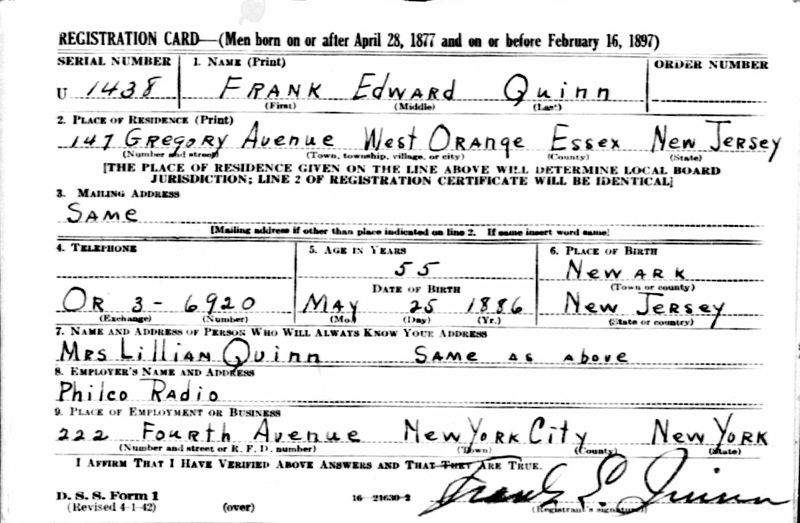 REGISTRATION CARD—(Men born on or after April 28, 1877 and on or before February 16, 1897)
SERIAL NUMBER 1. NAME (Print) ORDER NUMBER
U 1438 FRANK EDWARD QUINN
(First) (Middle) (Last)
2. PLACE OF RESIDENCE (Print)
147 GREGORY AVENUE WEST ORANGE ESSEX NEW JERSEY
(Number and street) (Town, township, village, or city) (County) (State)
[THE PLACE OF RESIDENCE GIVEN ON THE LINE ABOVE WILL DETERMINE LOCAL BOARD
JURISDICTION; LINE 2 OF REGISTRATION CERTIFICATE WILL BE IDENTICAL]
3. MAILING ADDRESS
SAME
[Mailing address if other than place indicated on line 2. If same insert word same]
4. TELEPHONE 5. AGE IN YEARS 6. PLACE OF BIRTH
55 NEWARK
DATE OF BIRTH (Town or county)
OR 3-6920 MAY 25 1886 NEW JERSEY
(Exchange) (Number) (Mo.) (Day) (Yr.) (State or country)
7. NAME AND ADDRESS OF PERSON WHO WILL ALWAYS KNOW YOUR ADDRESS
MRS LILLIAN QUINN SAME AS ABOVE
8. EMPLOYER'S NAME AND ADDRESS
PHILCO RADIO
9. PLACE OF EMPLOYMENT OR BUSINESS
222 FOURTH AVENUE NEW YORK CITY NEW YORK
(Number and street or R. F. D. number) (Town) (County) (State)
I AFFIRM THAT I HAVE VERIFIED ABOVE ANSWERS AND THAT THEY ARE TRUE.
D. S. S. Form 1
(Revised 4-1-42) (over) 16—21630-2 Frank E. Quinn
(Registrant's signature)